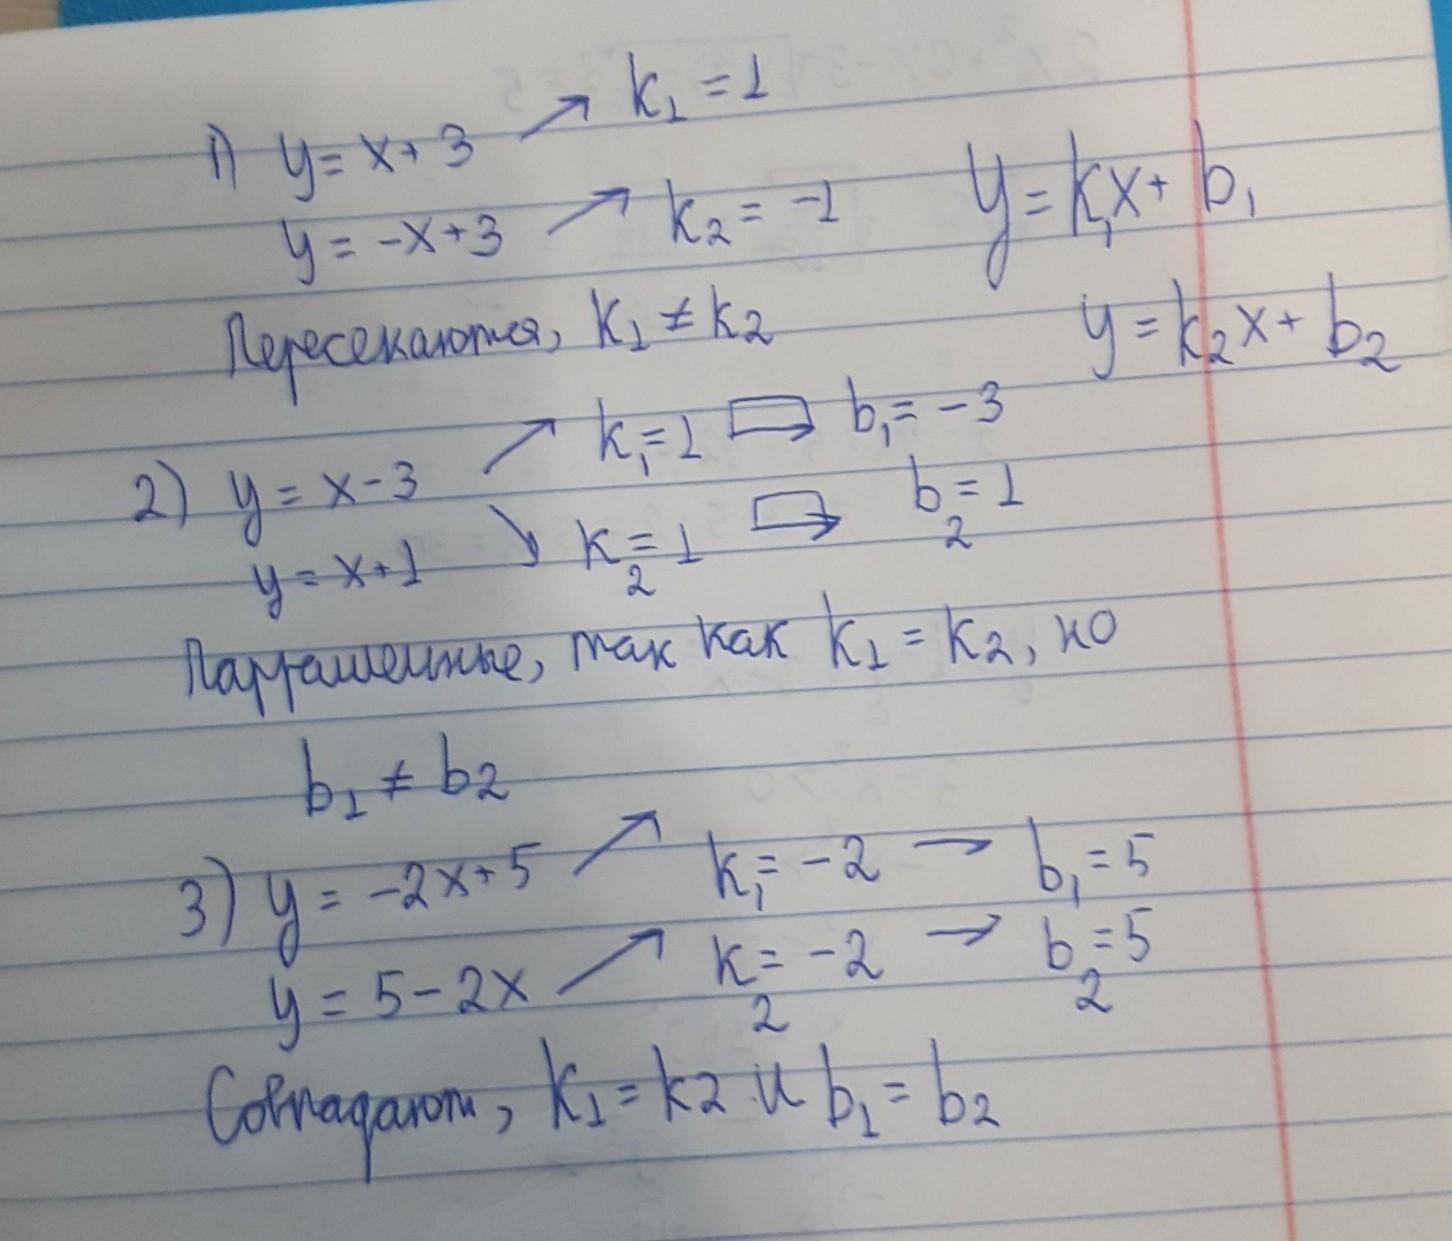 1) y = x + 3 ↗ k₁ = 1
y = -x + 3 ↗ k₂ = -1
y = k₁x + b₁
Пересекаются, k₁ ≠ k₂
y = k₂x + b₂
2) y = x - 3 ↗ k₁ = 1 ⇨ b₁ = -3
y = x + 1 ↘ k₂ = 1 ⇨ b₂ = 1
Парралельные, так как k₁ = k₂, но
b₁ ≠ b₂
3) y = -2x + 5 ↗ k₁ = -2 → b₁ = 5
y = 5 - 2x ↗ k₂ = -2 → b₂ = 5
Совпадают, k₁ = k2 и b₁ = b₂